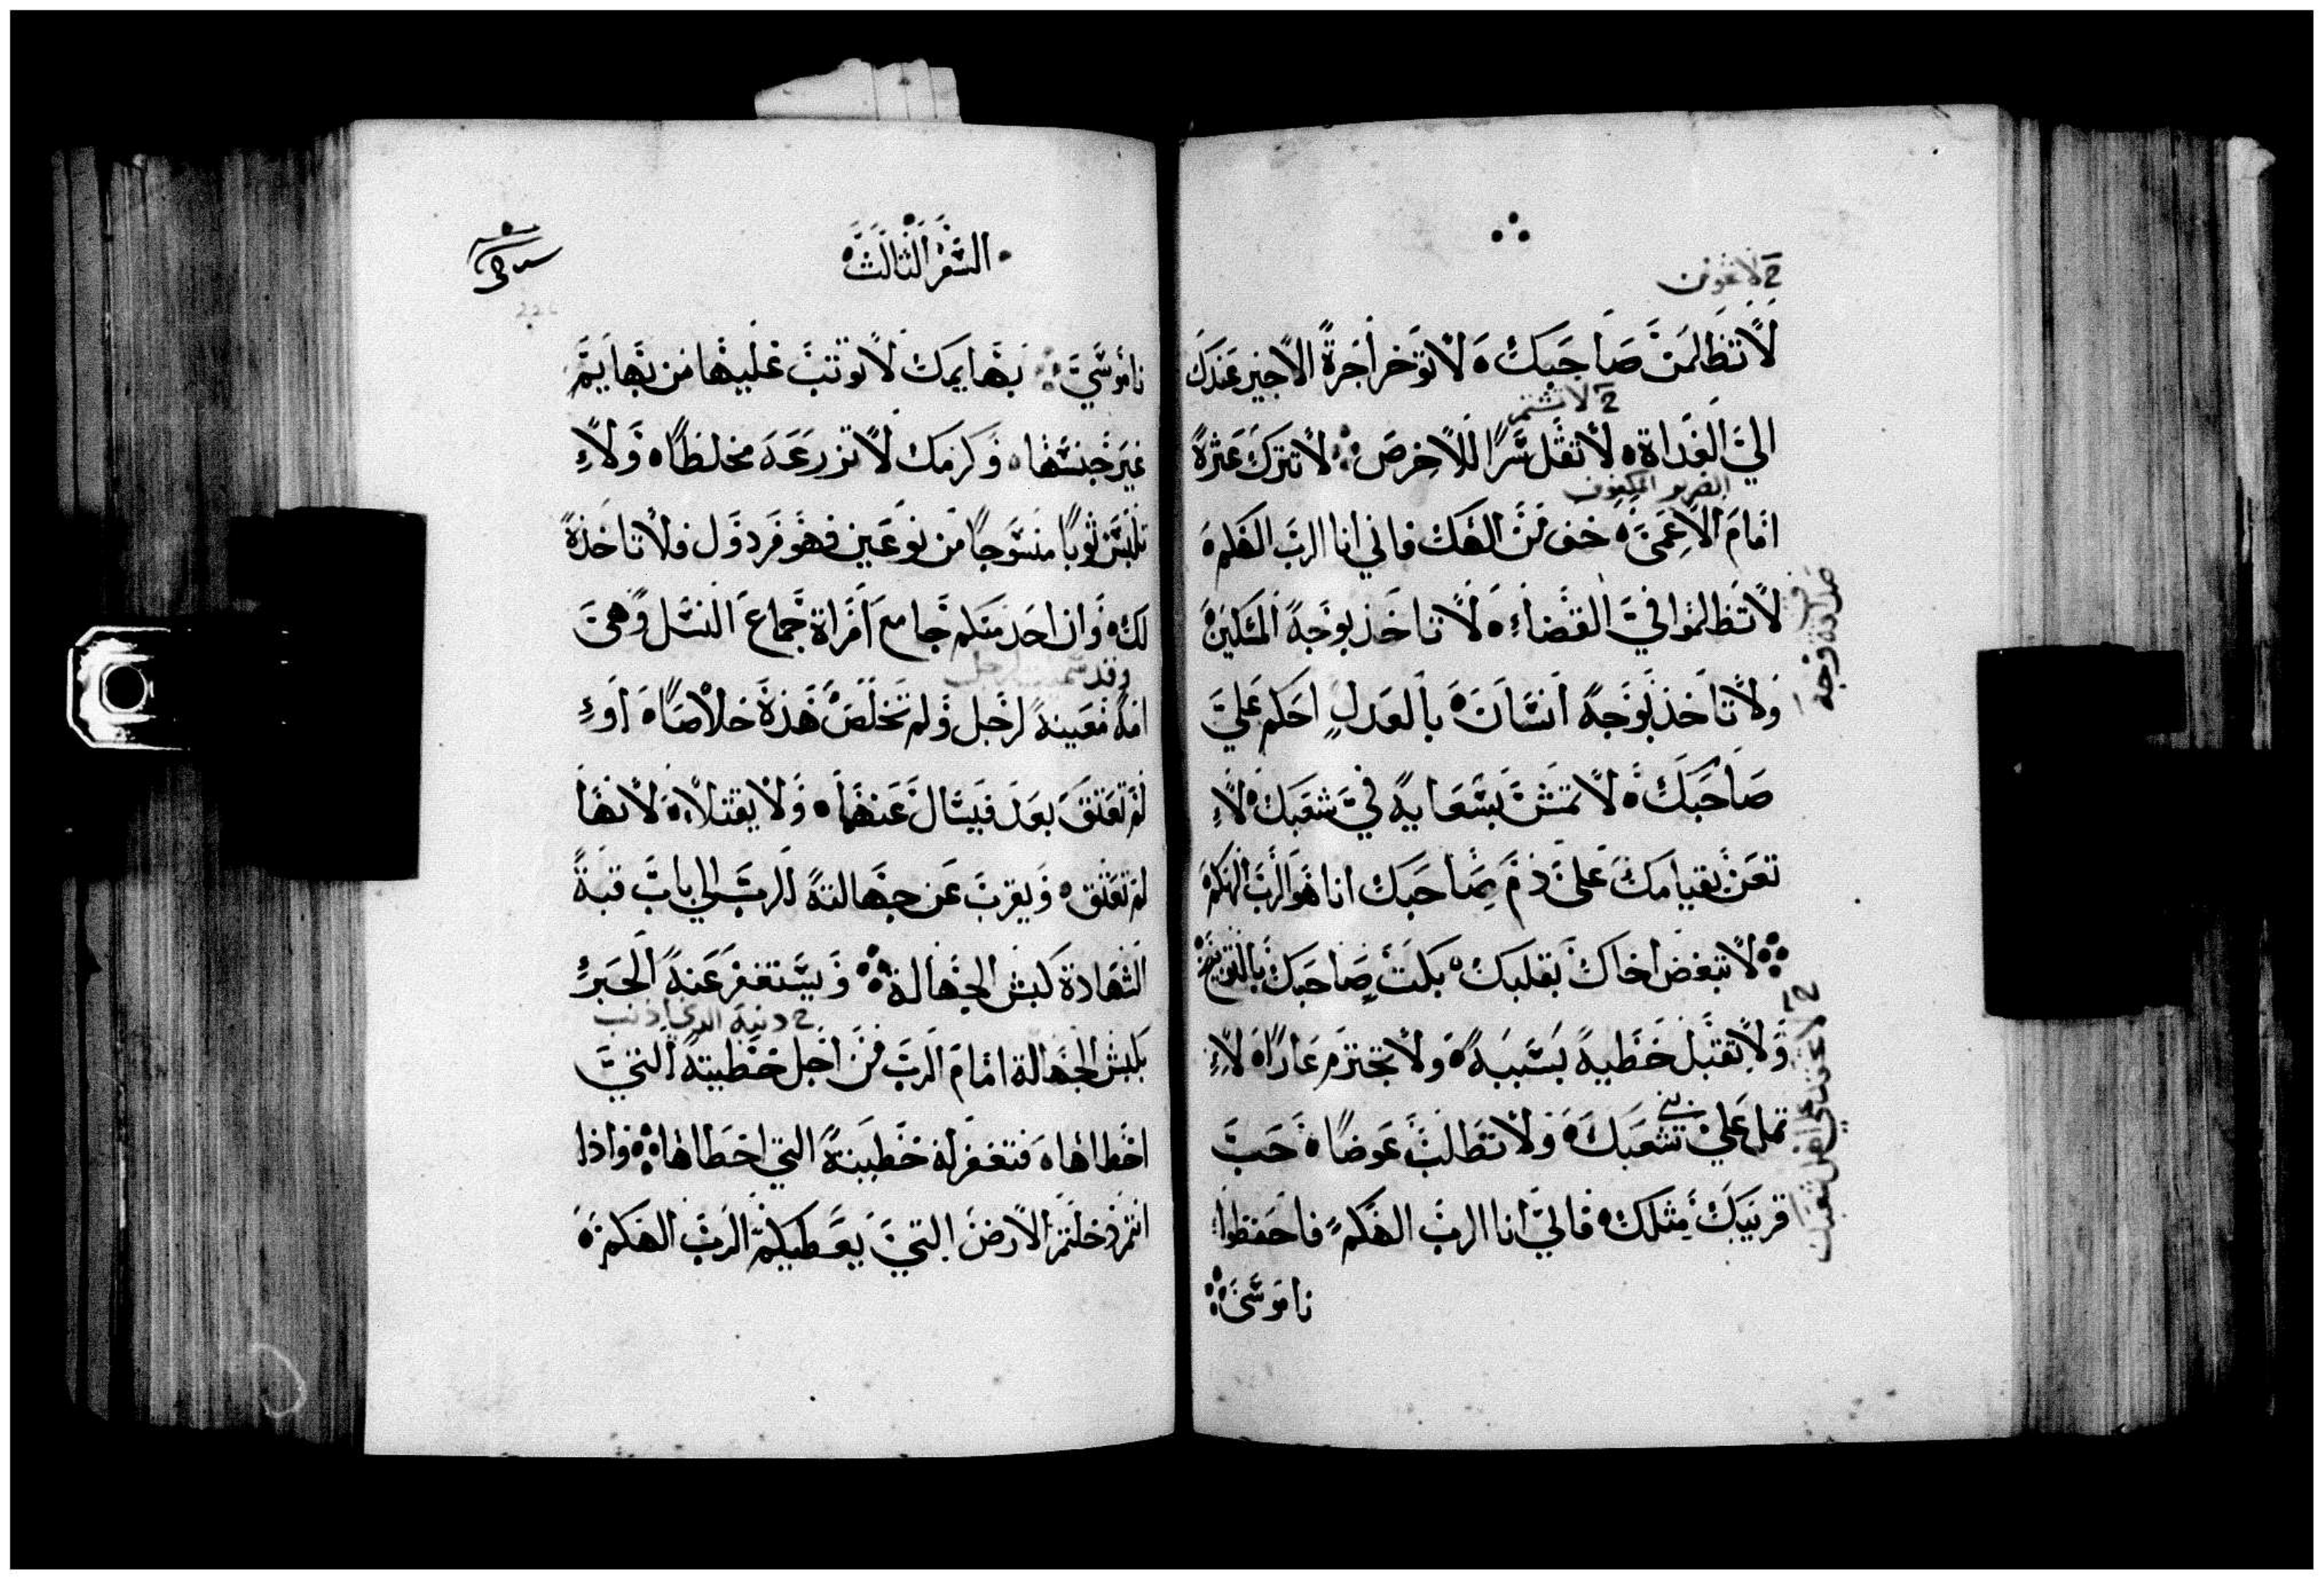 لا تظلمن صاحبك ولا توخر اجرة الاجير عندك
الي الغداة لا تقل شرا للاخرص لا تترك عثرة
امام الاعمى خف من الهك فاني انا الرب الهكم
لا تظلموا في القضاء لا تاخذ بوجه المسكين
ولا تاخذ بوجه انسان بالعدل احكم علي
صاحبك لا تمش بسعاية في شعبك لا
تعن بقيامك على ذم صاحبك انا هو الرب الهكم
لا تبغض اخاك بقلبك بكت صاحبك بالتوبيخ
ولا تقتبل خطية بسببه ولا تحتزم عارا لا
تمل علي شعبك ولا تطلب عوضا حب
قريبك مثلك فاني انا الرب الهكم فاحفظوا
ناموسي
السفر الثالث
ناموسي بهايمك لا توثب عليها من بهايم
غير جنسها وكرمك لا تزرعه مخلطا ولا
تلبس ثوبا منسوجا من نوعين فهو فردول فلا تاخذه
لك وان احد منكم جامع امراة جماع النسل وهي
امة معينة لرجل ولم تخلص هذه خلاصا او
لم تعتق بعد فيسال عنهما ولا يقتلا لانها
لم تعتق ويقرب عن جهالته للرب الي باب قبة
الشهادة كبش الجهالة ويستغفر عنه الحبر
بكبش الجهالة امام الرب من اجل خطيته التي
اخطاها فتغفر له خطيته التي اخطاها واذا
انتم دخلتم الارض التي يعطيكم الرب الهكم
لا تشتم
الضرير المكفوف